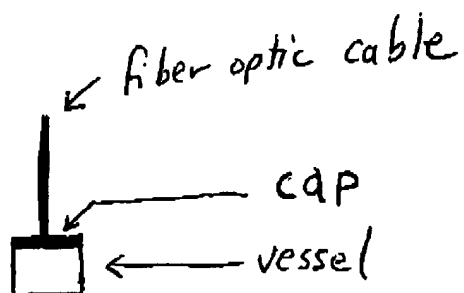 fiber optic cable
cap
vessel